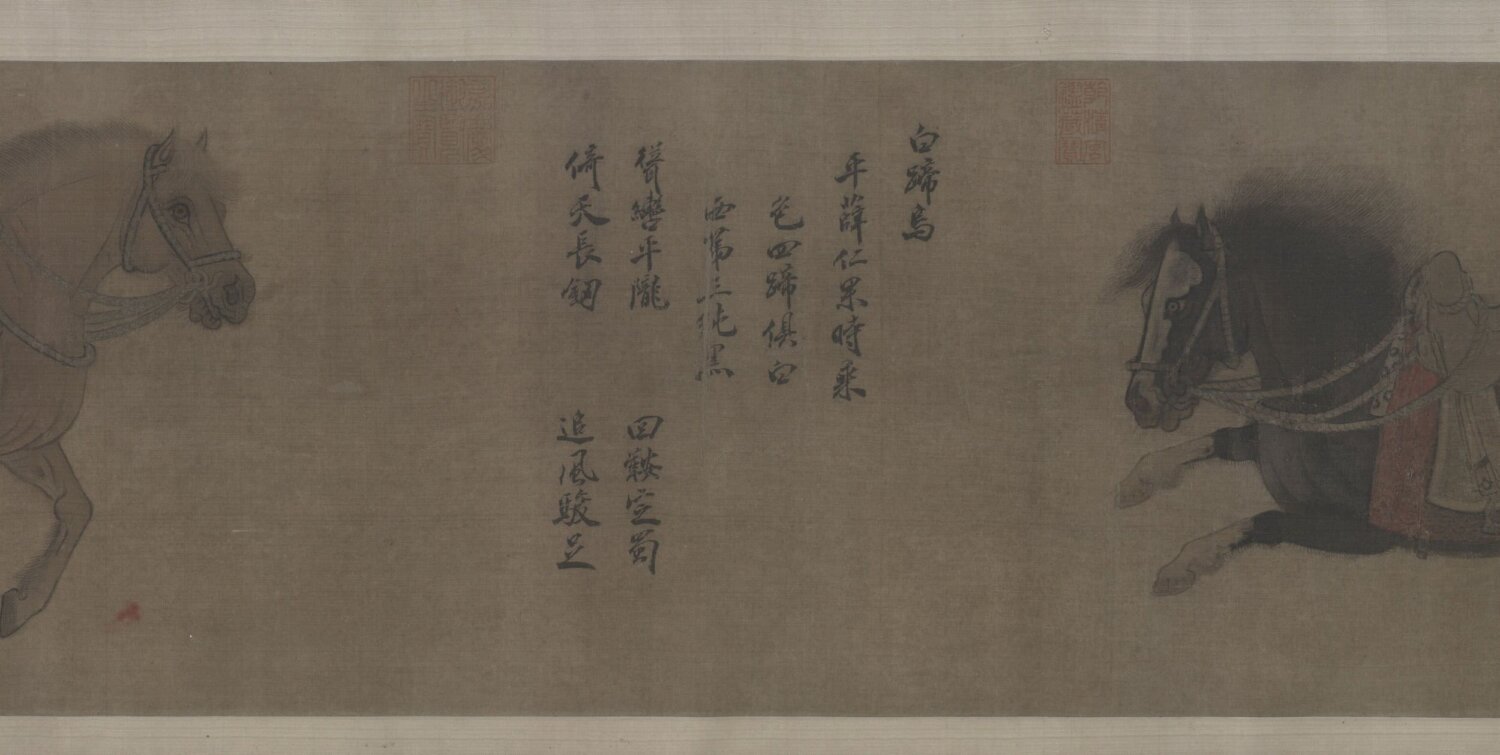 倚天長劍 追風駿足
聳轡平隴 回鞍定蜀
西第三純黑
色四蹄俱白
平薛仁杲時乘
白蹄烏